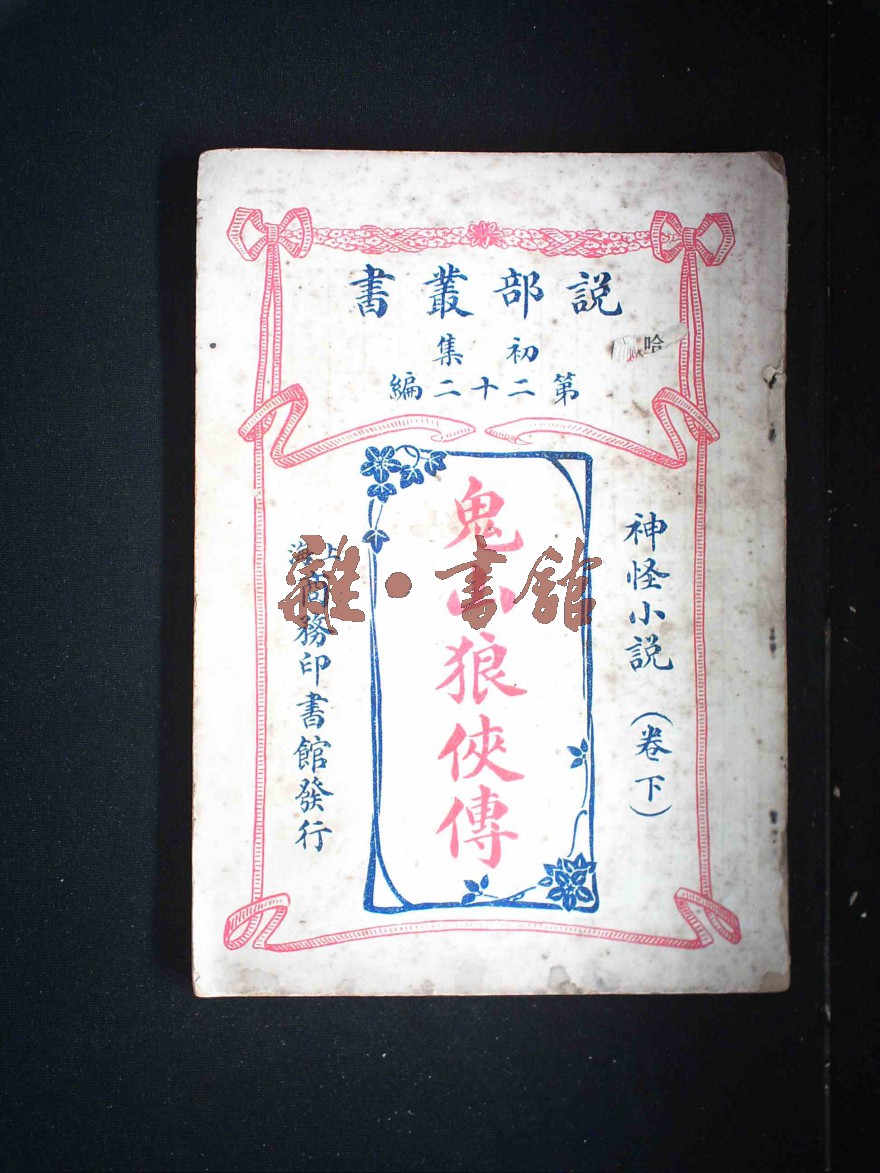 説部叢書
初集
第二十二編
哈
神怪小説（卷下）
鬼山狼俠傳
上海商務印書館發行
雜·書館